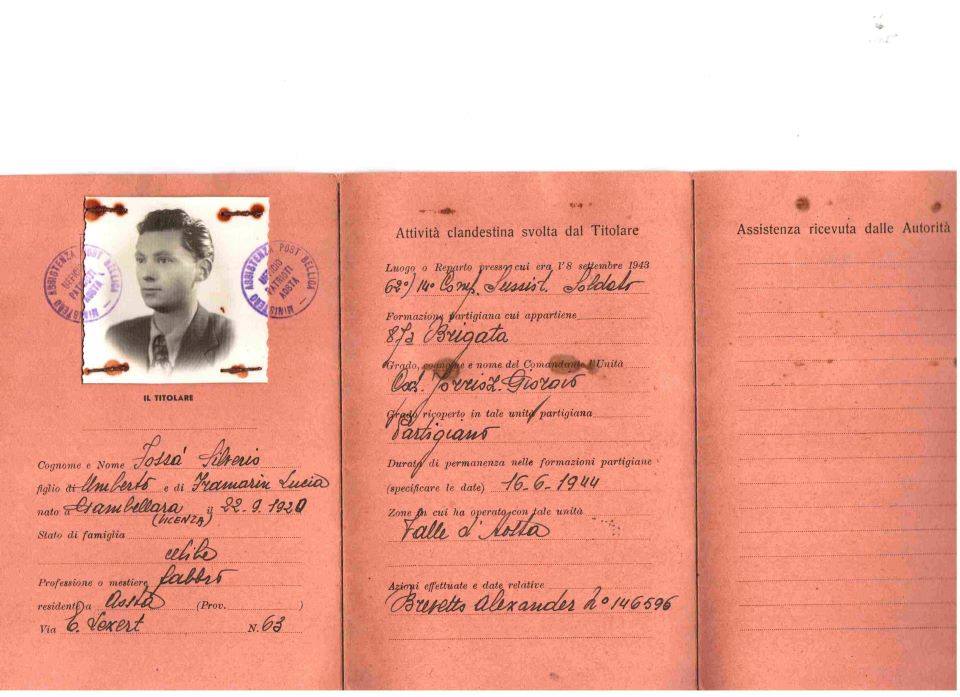 MINISTERO ASSISTENZA POST BELLICA
UFFICIO
PATRIOTI
AOSTA
MINISTERO ASSISTENZA POST BELLICA
UFFICIO
PATRIOTI
AOSTA
IL TITOLARE
Cognome e Nome Fossà Silverio
figlio di Umberto e di Framarin Lucia
nato a Gambellara il 22.9.1920
(VICENZA)
Stato di famiglia
celibe
Professione o mestiere fabbro
residente a Aosta (Prov. )
Via N. 63
Attività clandestina svolta dal Titolare
Luogo o Reparto presso cui era l'8 settembre 1943
62°/14° Comp. Sussist. Soldato
Formazione partigiana cui appartiene
87a Brigata
Grado, cognome e nome del Comandante l'Unità
Giorgio
Grado ricoperto in tale unità partigiana
Partigiano
Durata di permanenza nelle formazioni partigiane
(specificare le date) 16-6-1944
Zone in cui ha operato con tale unità
Valle d'Aosta
Azioni effettuate e date relative
Brevetto Alexander N° 146596
Assistenza ricevuta dalle Autorità